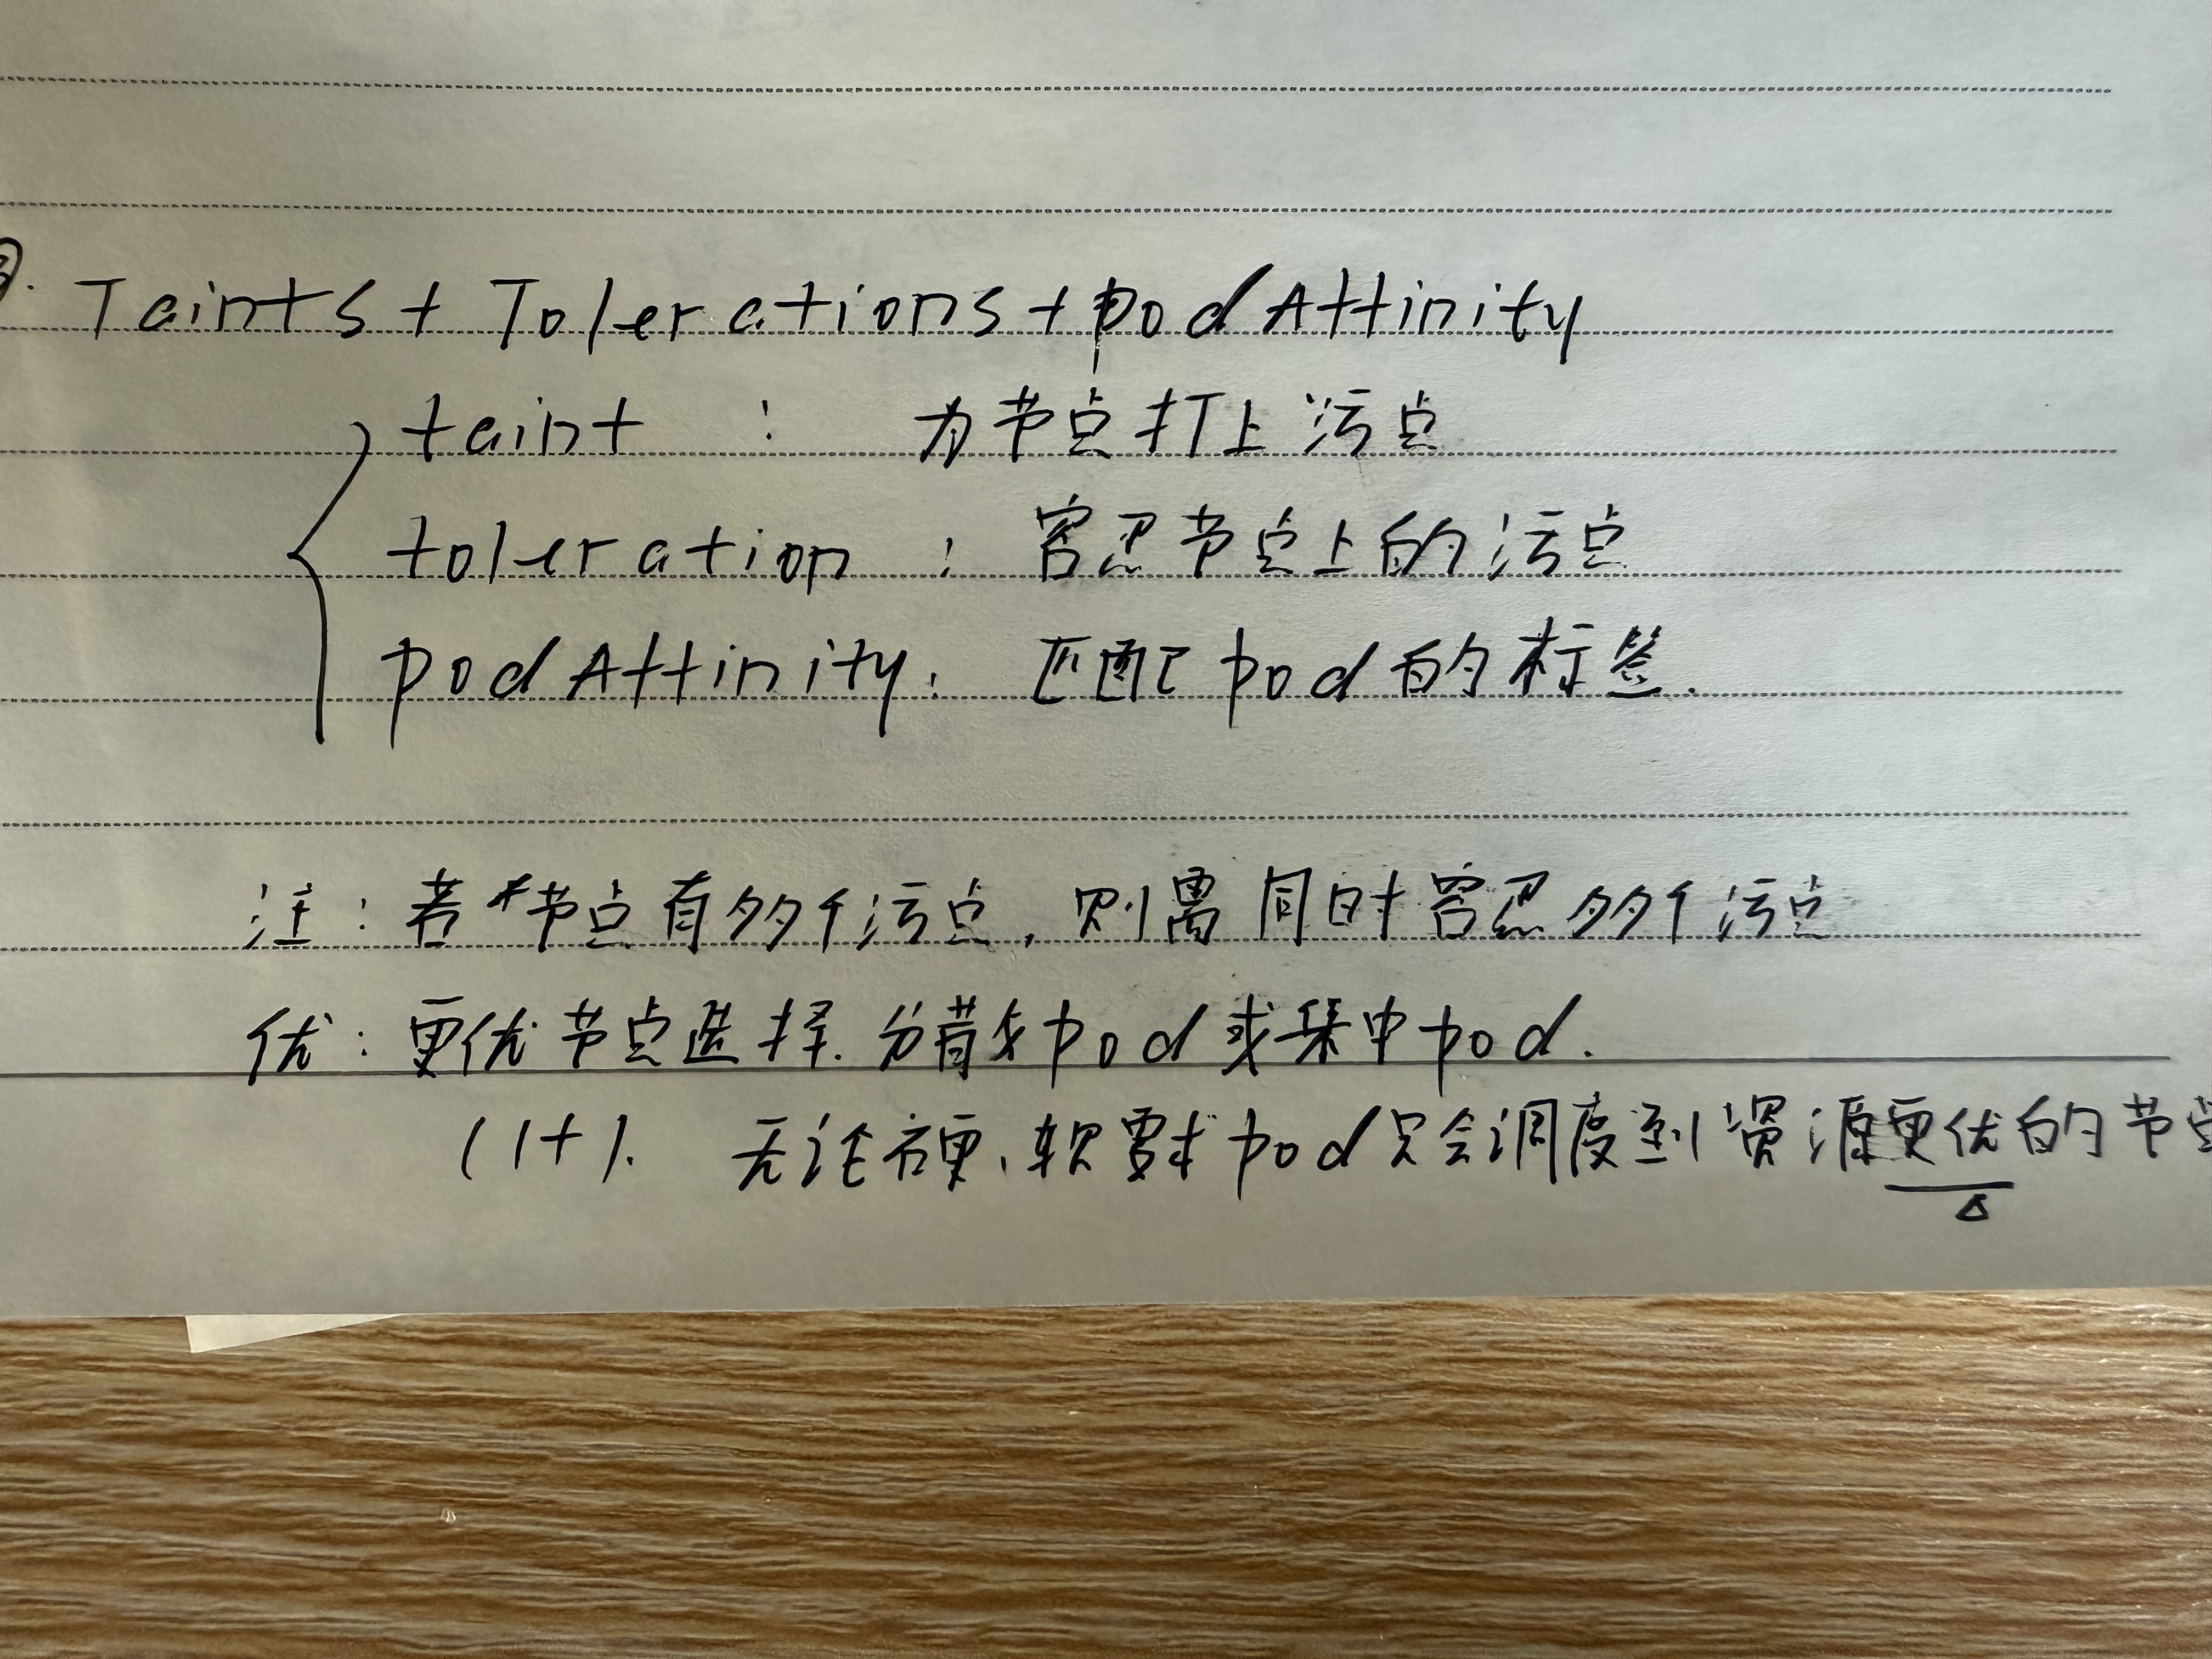 Taints + Tolerations + podAffinity
taint : 为节点打上污点
toleration : 容忍节点上的污点
podAffinity: 匹配pod的标签.
注: 若节点有多个污点, 则需同时容忍多个污点
优: 更优节点选择. 分散pod或集中pod.
(1+). 无论硬、软要求pod只会调度到资源更优的节点